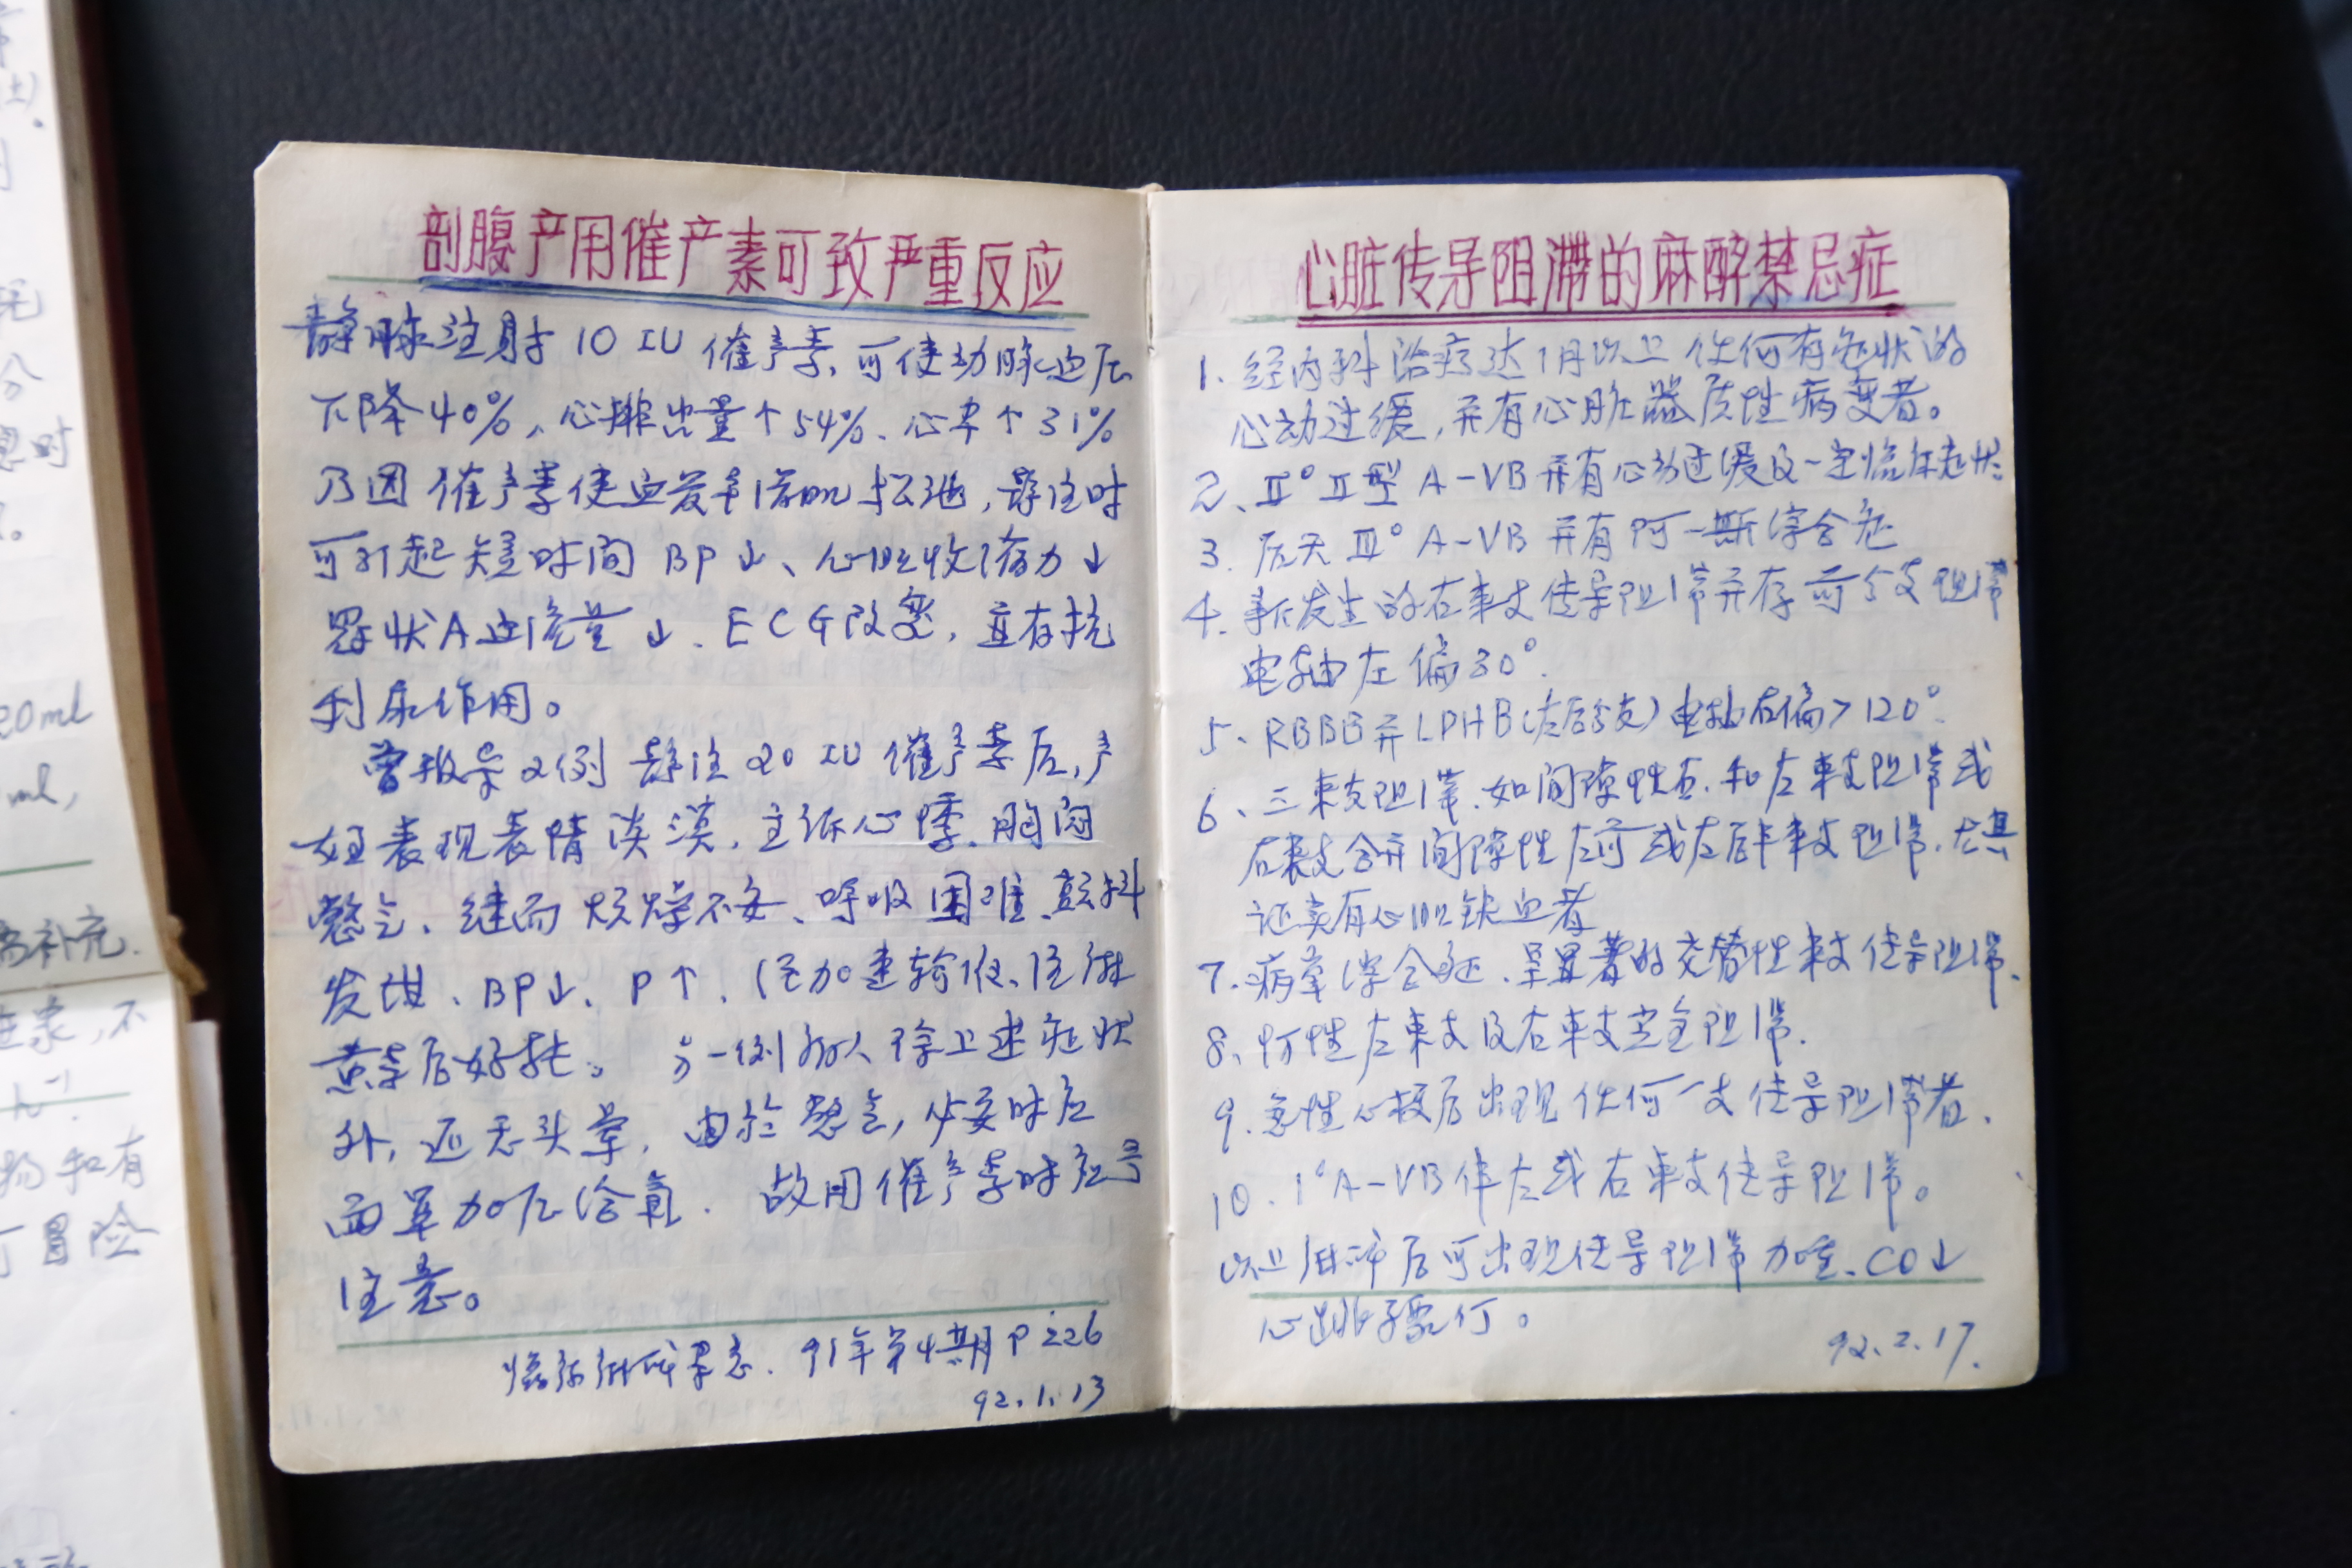 20ml
ml,
补充.
物和有
冒险
剖腹产用催产素可致严重反应
静脉注射 10 IU 催产素,可使动脉血压
下降40%、心排出量↑54%、心率↑31%
乃因催产素使血管平滑肌松弛,静注时
可引起短时间 BP↓、心肌收缩力↓
冠状A血流量↓、ECG改变,且有抗
利尿作用。
曾报导2例静注20 IU 催产素后,产
妇表现表情淡漠,主诉心悸、胸闷
憋气、继而烦燥不安、呼吸困难、寒抖
发绀、BP↓、P↑,经加速输液、注射
黄素后好转。另一例病人除上述症状
外,还恶头晕,由於憋气,必要时应
面罩加压给氧. 故用催产素时应予
注意。
临床麻醉杂志. 91年第4期 P226
92.1.13
心脏传导阻滞的麻醉禁忌症
1. 经内科治疗达1月以上任何有症状的
心动过缓,并有心脏器质性病变者。
2、Ⅱ°Ⅱ型 A-VB 并有心动过缓及一定临床症状
3. 后天Ⅲ° A-VB 并有阿-斯综合症
4. 新发生的右束支传导阻滞并存前分支阻滞
电轴左偏30°.
5、RBBB并LPHB(左后分支)电轴右偏>120°.
6、三束支阻滞.如间隙性右.和左束支阻滞或
右束支合并间隙性左前或左后半束支阻滞.尤其
证实有心肌缺血者
7. 病窦综合症.呈显著的交替性束支传导阻滞.
8、慢性左束支及右束支完全阻滞.
9. 急性心梗后出现任何一支传导阻滞者.
10. 1°A-VB伴左或右束支传导阻滞。
以上麻醉后可出现传导阻滞加重、CO↓
心跳骤停。
92.2.17.